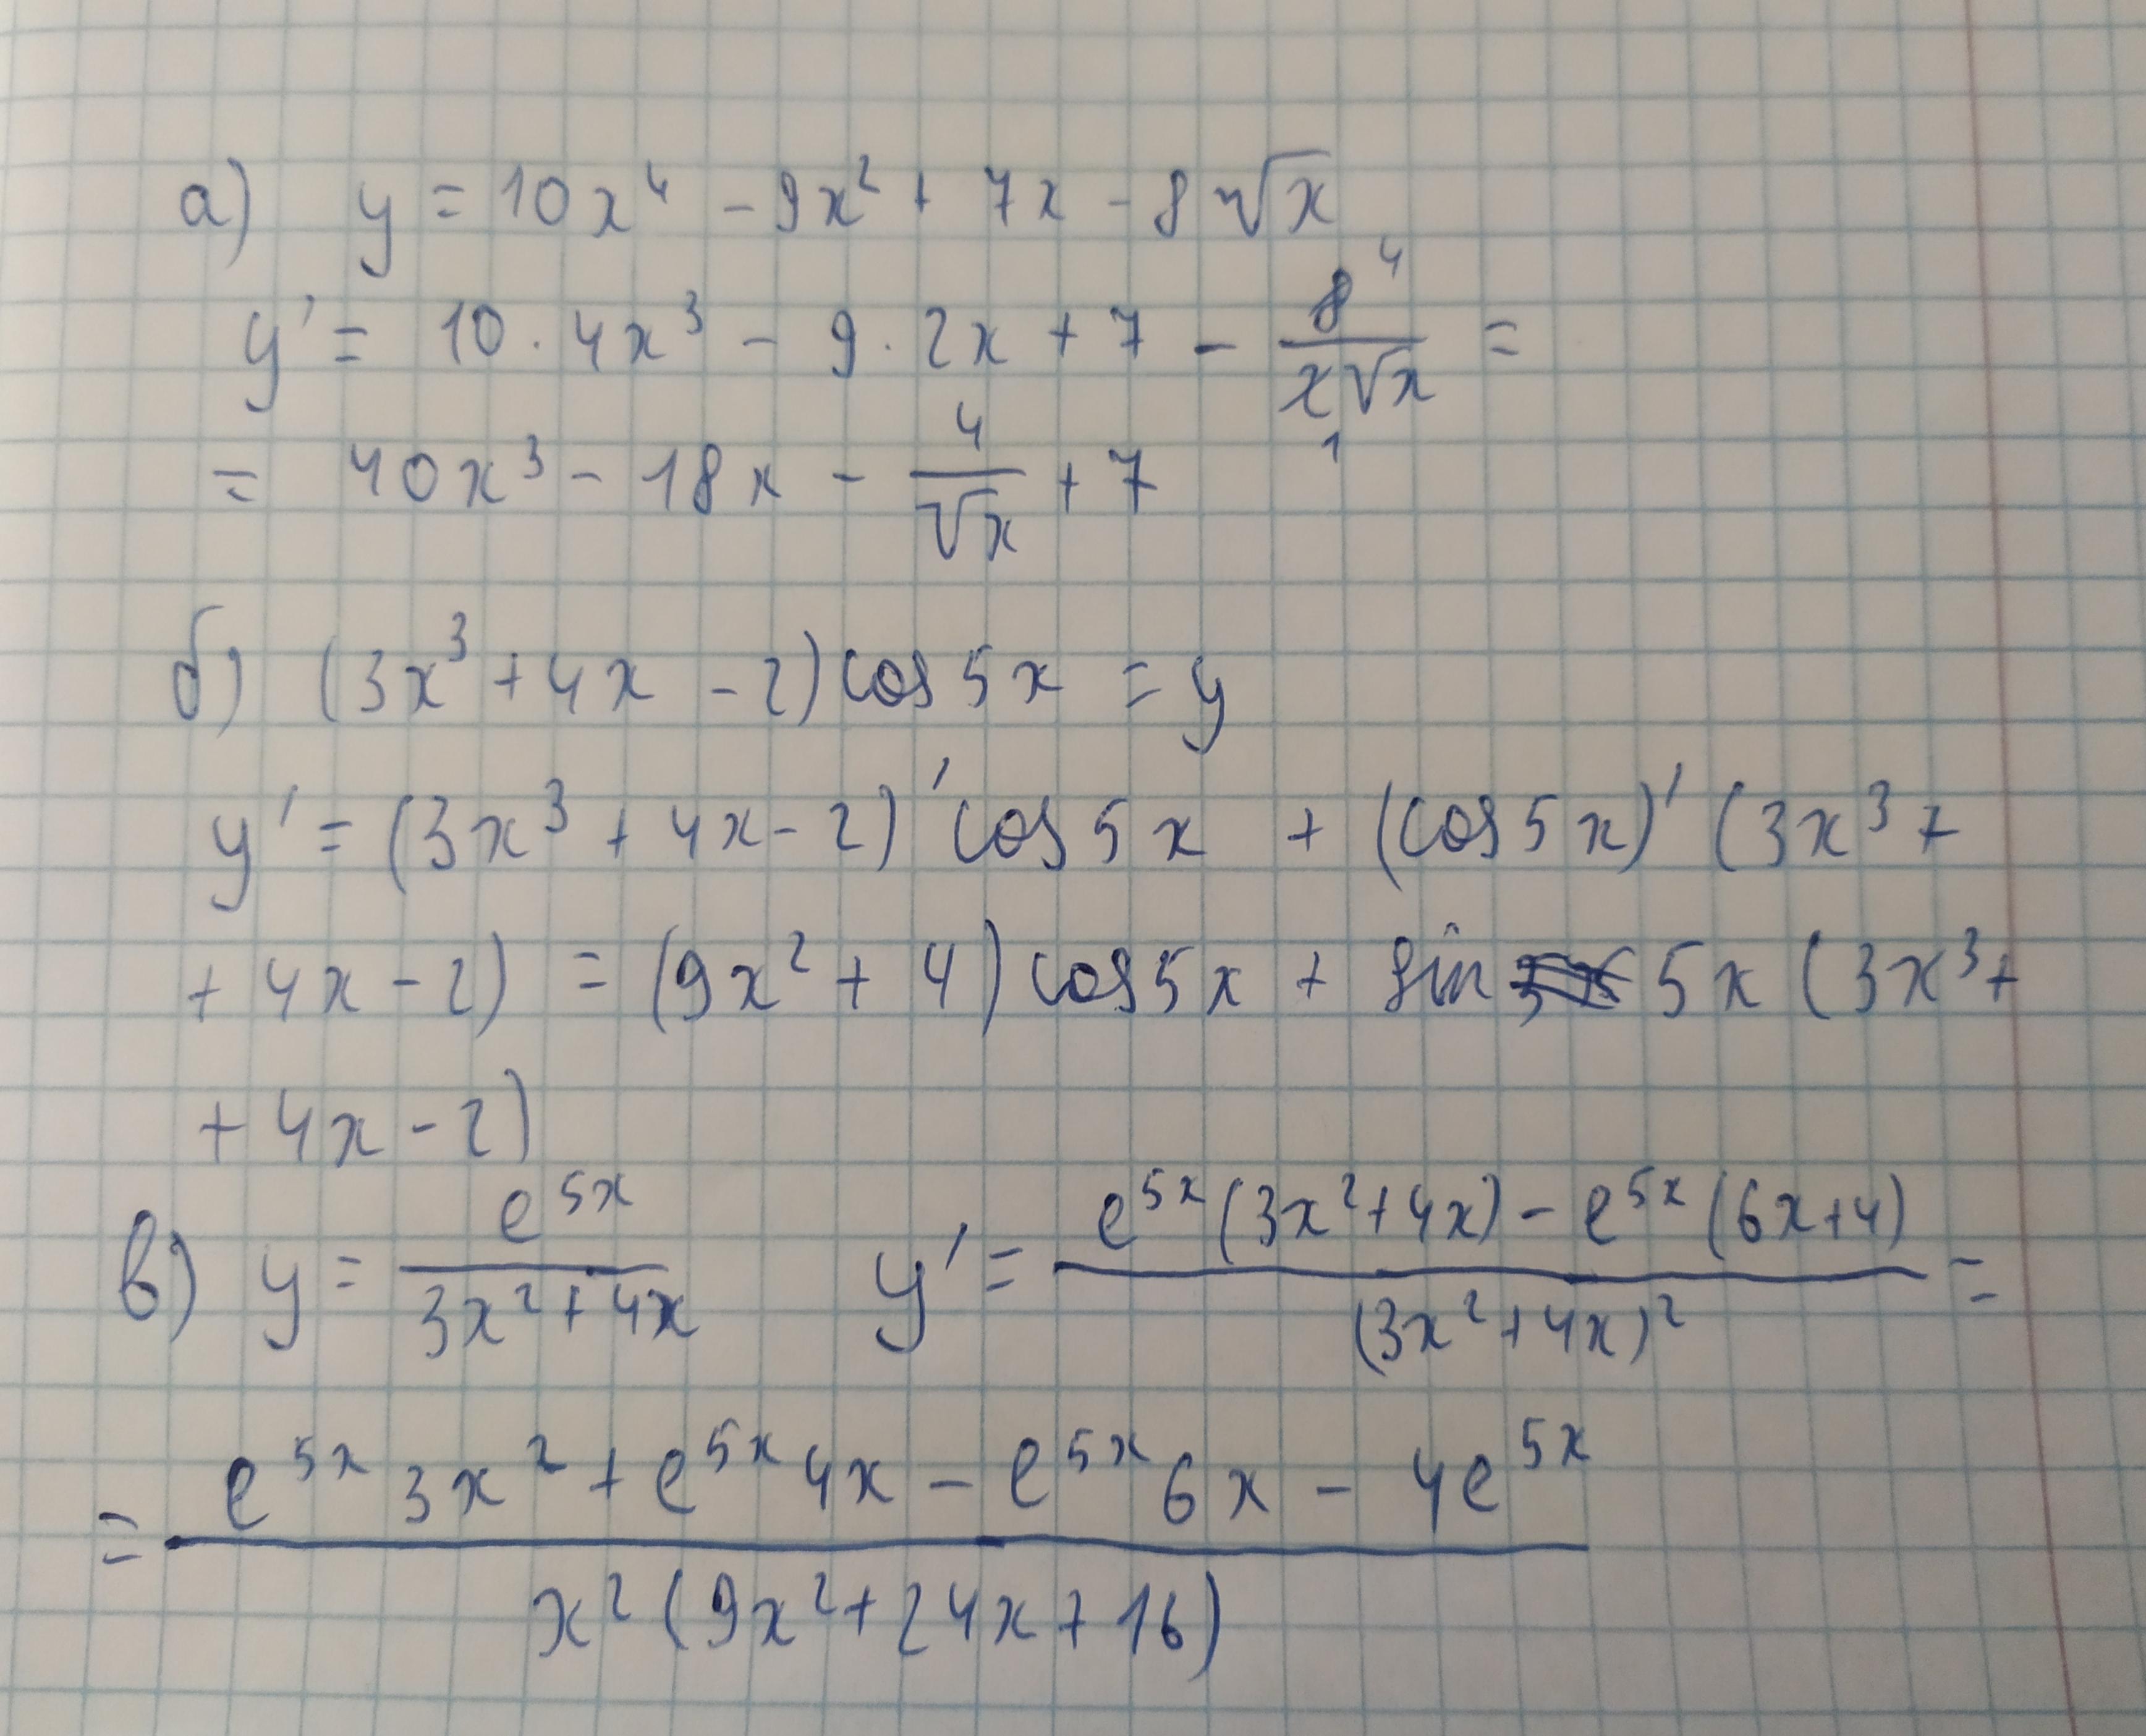 а) y = 10x⁴ - 9x² + 7x - 8√x
y' = 10 · 4x³ - 9 · 2x + 7 - 8⁴/(2√x)₁ =
= 40x³ - 18x - 4/√x + 7
б) (3x³ + 4x - 2) cos 5x = y
y' = (3x³ + 4x - 2)' cos 5x + (cos 5x)' (3x³ +
+ 4x - 2) = (9x² + 4) cos 5x + sin 5x (3x³ +
+ 4x - 2)
в) y = e⁵ˣ/(3x² + 4x) y' = (e⁵ˣ(3x² + 4x) - e⁵ˣ(6x + 4))/(3x² + 4x)² =
= (e⁵ˣ 3x² + e⁵ˣ 4x - e⁵ˣ 6x - 4e⁵ˣ)/(x²(9x² + 24x + 16))